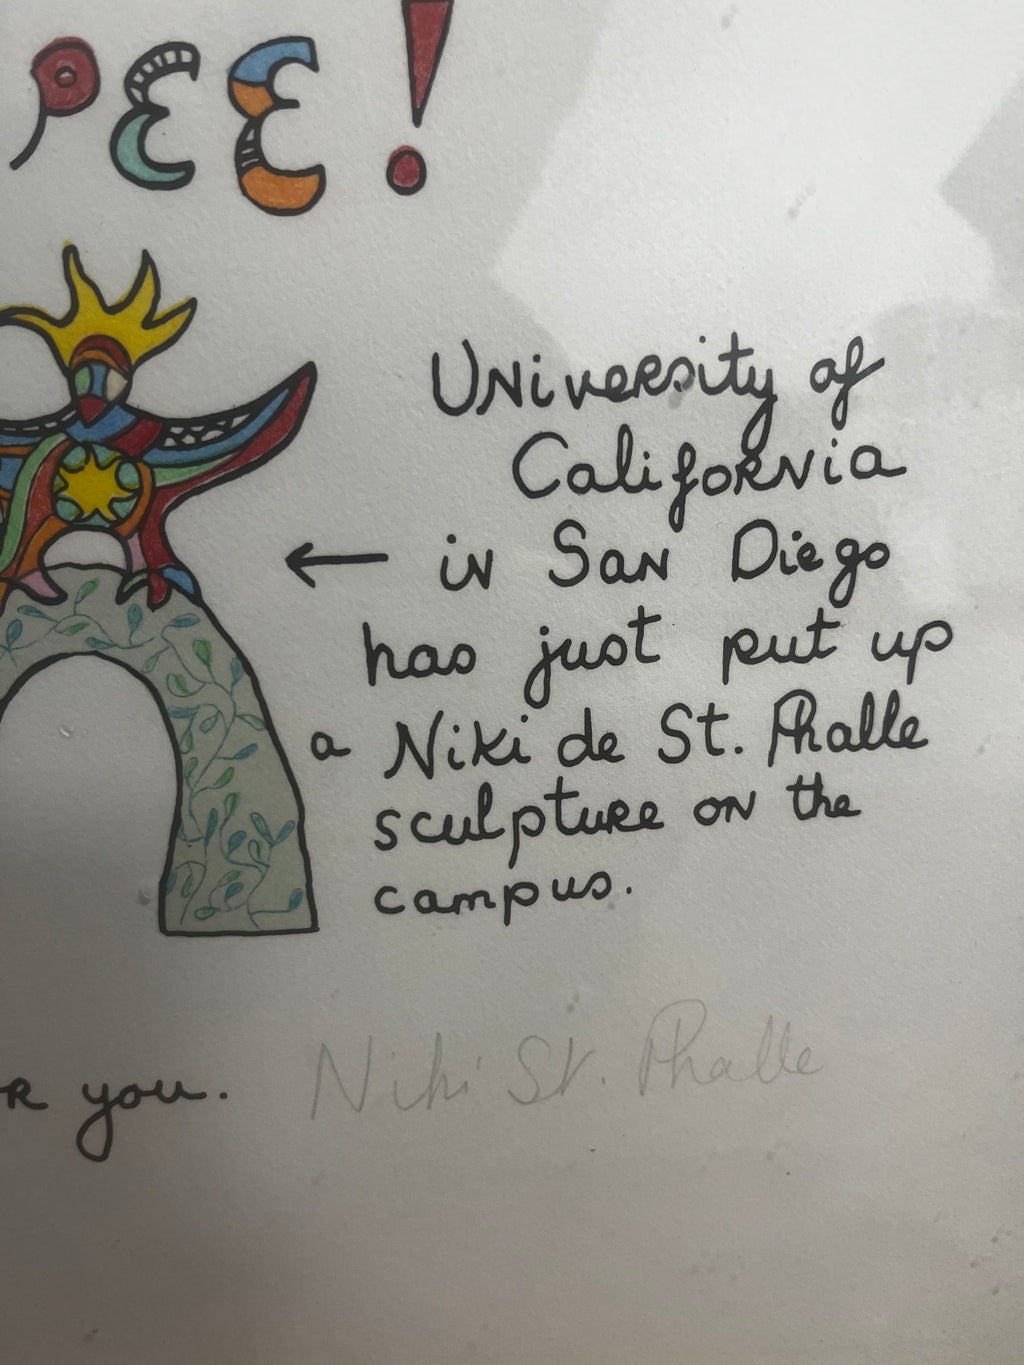 PEE!
University of
California
← in San Diego
has just put up
a Niki de St. Phalle
sculpture on the
campus.
R you. Niki St. Phalle